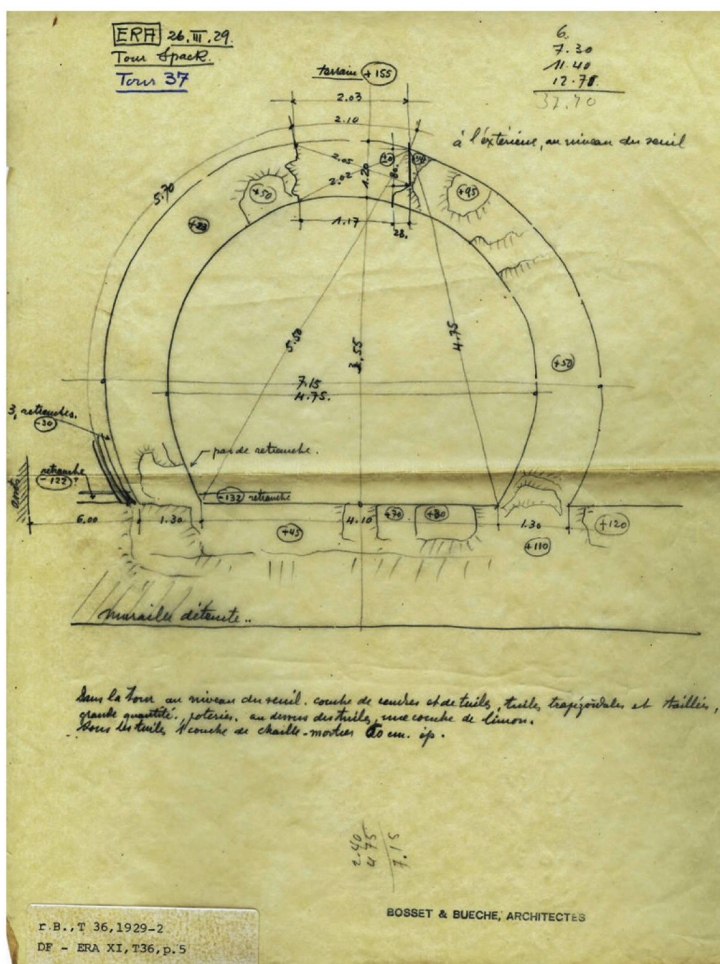 ERA 26.III.29.
Tour Spack.
Tour 37
6.
7.30
11.40
12.70.
37.40
terrain +155
2.03
2.10
à l'extérieur, au niveau du seuil
2.05
2.02
1.20
80.
30
5.70
+50
+95
1.17
28.
5.50
3.55
4.75
+50
7.15
4.75.
3, retranches.
-30
pas de retranche.
retranche
-122?
-132 retranche
6.00
1.30
4.10
+70
+80
1.30
+120
+45
+110
muraille détruite..
Dans la Tour au niveau du seuil. couche de cendres et de tuiles, tuiles trapézoïdales et taillées,
grande quantité, poteries. au dessus des tuiles, une couche de limon.
Sous les tuiles couche de chaille-mortier 10 cm. ép.
2.40
4.75
7.15
BOSSET & BUECHE, ARCHITECTES
r.B.,T 36,1929-2
DF - ERA XI,T36,p.5